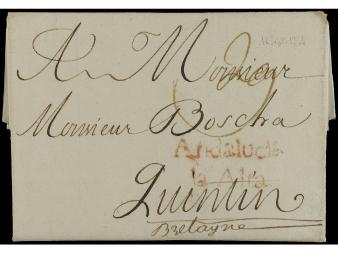 A Monsieur
Monsieur Boscha
Andalucia
la Alta
Quentin
Bretagne